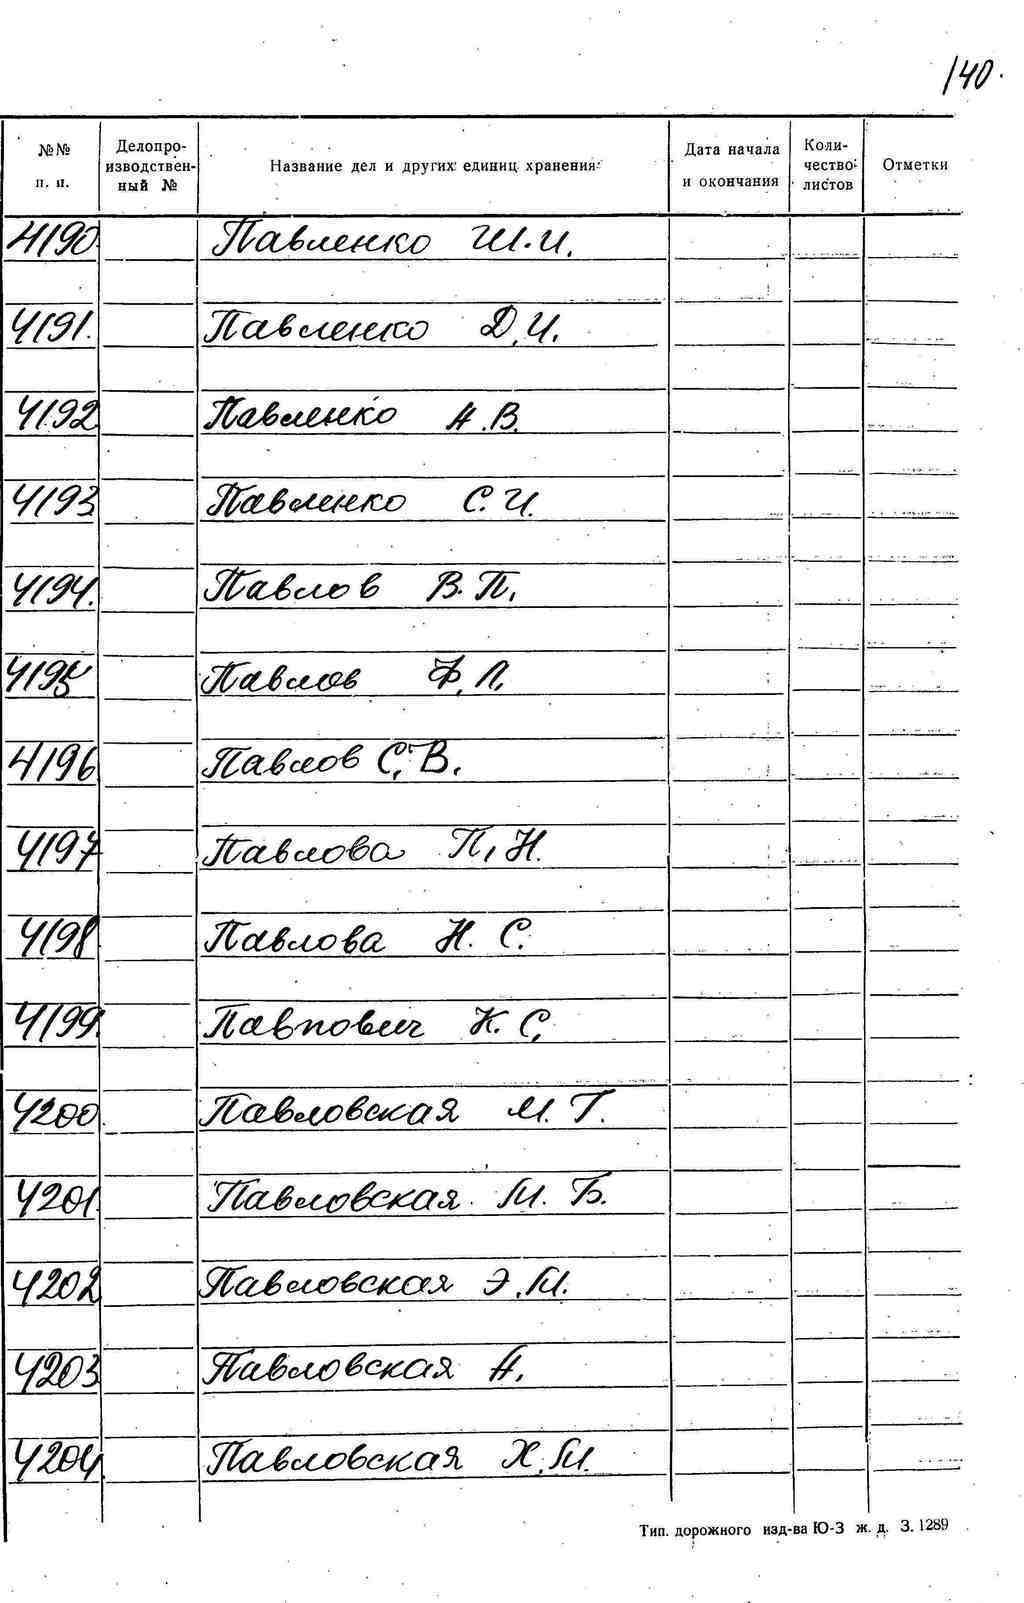 140.
№№ п. п.
Делопро-
изводствен-
ный №
Название дел и других единиц хранения
Дата начала
и окончания
Коли-
чество
листов
Отметки
4190 Павленко И.
4191. Павленко Д. И.
4192 Павленко А. В.
4193 Павленко С. И.
4194. Павлов В. П.
4195 Павлов Ф. Л.
4196 Павлов С. В.
4197 Павлова П. Н.
4198 Павлова Н. С.
4199. Павлович К. С.
4200 Павловская М. Г.
4201 Павловская М. Б.
4202 Павловская Э. М.
4203 Павловская А.
4204 Павловская Х. М.
Тип. дорожного изд-ва Ю-З ж. д. З. 1289